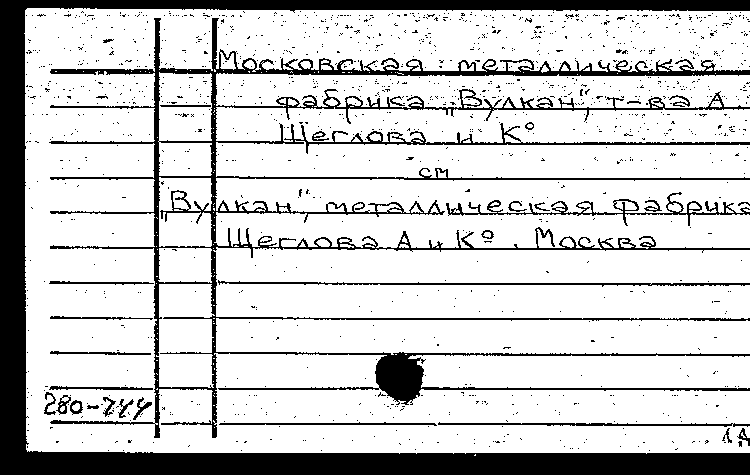 Московская металлическая
фабрика „Вулкан“, т-ва А
Щеглова и К°
см
„Вулкан“, металлическая фабрика
Щеглова А и К° . Москва
280-744